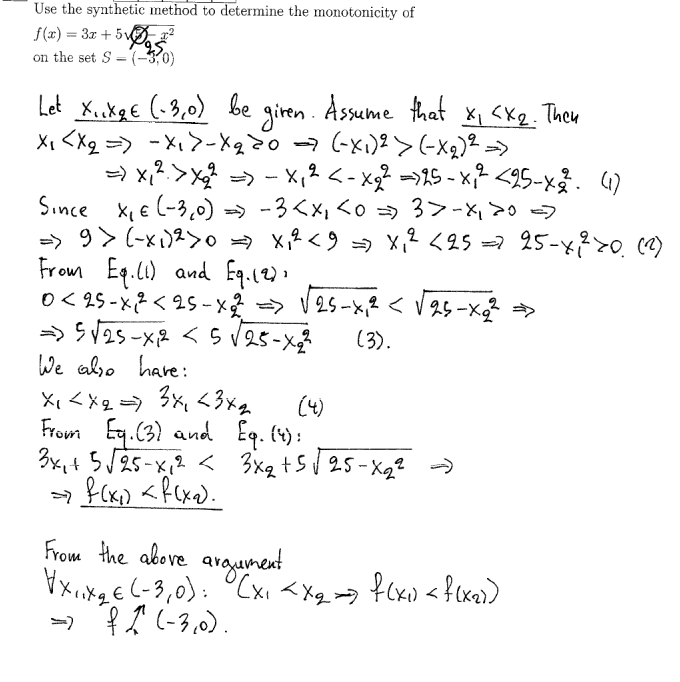 Use the synthetic method to determine the monotonicity of
f(x) = 3x + 5√25 − x²
on the set S = (−3, 0)
Let x₁,x₂∈ (-3,0) be given. Assume that x₁ <x₂. Then
x₁ <x₂ ⇒ -x₁>-x₂≥0 ⇒ (-x₁)² > (-x₂)² ⇒
⇒ x₁² > x₂² ⇒ -x₁² < -x₂² ⇒ 25-x₁² <25-x₂². (1)
Since x₁ ∈ (-3,0) ⇒ -3<x₁ <0 ⇒ 3>-x₁ >0 ⇒
⇒ 9 > (-x₁)²>0 ⇒ x₁² < 9 ⇒ x₁² <25 ⇒ 25-x₁²>0. (2)
From Eq.(1) and Eq.(2),
0 < 25-x₁² < 25-x₂² ⇒ √25-x₁² < √25-x₂² ⇒
⇒ 5√25-x₁² < 5√25-x₂² (3).
We also have:
x₁ <x₂ ⇒ 3x₁ <3x₂ (4)
From Eq.(3) and Eq.(4):
3x₁+ 5√25-x₁² < 3x₂+5√25-x₂² ⇒
⇒ f(x₁) <f(x₂).
From the above argument
∀x₁,x₂∈(-3,0): (x₁ <x₂ ⇒ f(x₁) <f(x₂))
⇒ f↑(-3,0).